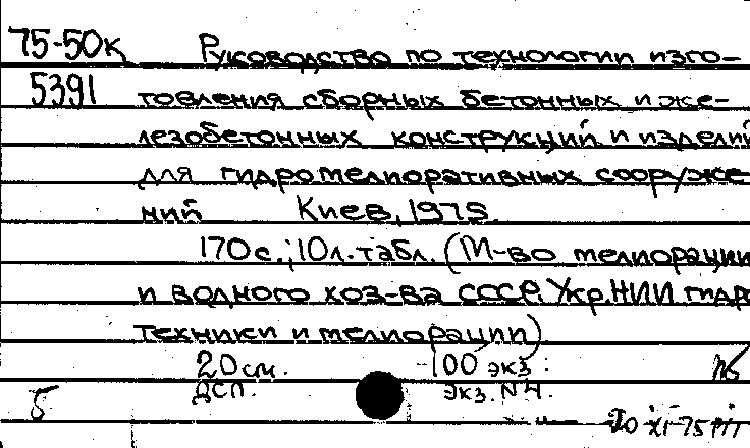 75-50к Руководство по технологии изго-
5391 товления сборных бетонных и же-
лезобетонных конструкций и изделий
для гидромелиоративных сооруже-
ний Киев, 1975.
170 с.; 10 л. табл. (М-во мелиорации
и водного хоз-ва СССР. Укр. НИИ гидро
техники и мелиорации)
20 см. 100 экз.
ДСП. экз. № 4.
Б
20 XI-75